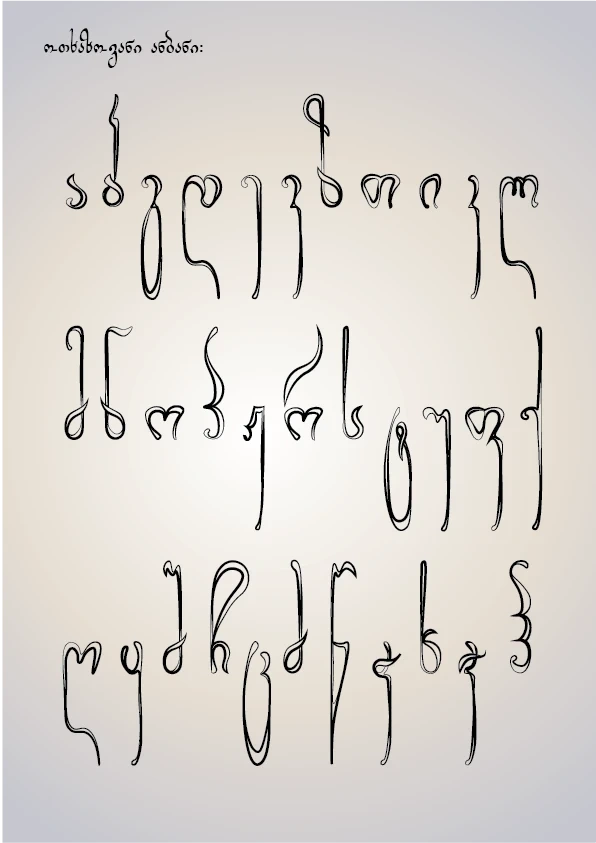 ოთხაზოვანი ანბანი:
ა ბ გ დ ე ვ ზ თ ი კ ლ
მ ნ ო პ ჟ რ ს ტ უ ფ ქ
ღ ყ შ ჩ ც ძ წ ჭ ხ ჯ ჰ